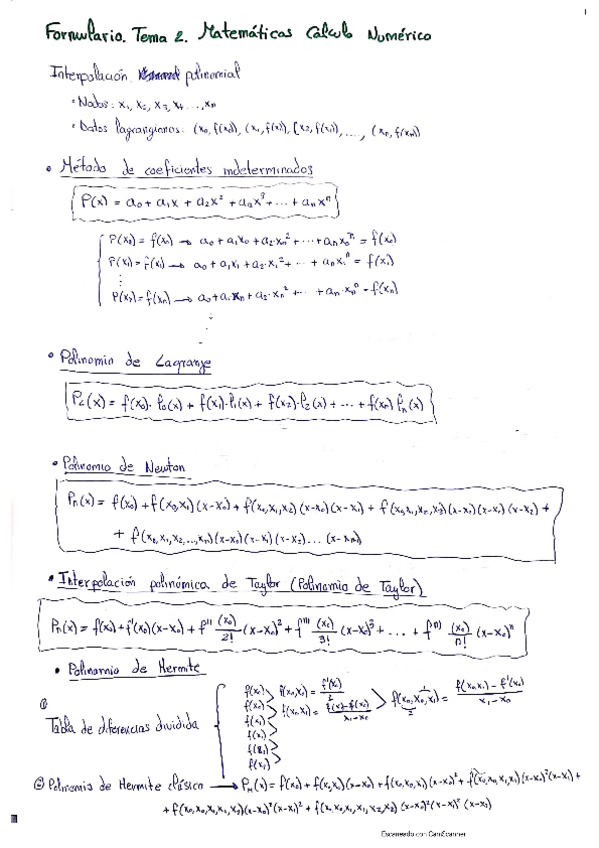 Formulario. Tema 2. Matemáticas Cálculo Numérico
Interpolación polinomial
• Nodos: x₁, x₂, x₃, x₄ ..., xₙ
• Datos lagrangianos: (x₀, f(x₀)), (x₁, f(x₁)), [x₂, f(x₂)), ...., (xₙ, f(xₙ))
• Método de coeficientes indeterminados
P(x) = a₀ + a₁x + a₂x² + a₃x³ + ... + aₙxⁿ
P(x₀) = f(x₀) → a₀ + a₁x₀ + a₂·x₀² + ... + aₙx₀ⁿ = f(x₀)
P(x₁) = f(x₁) → a₀ + a₁x₁ + a₂·x₁² + ... + aₙx₁ⁿ = f(x₁)
⋮
P(xₙ) = f(xₙ) → a₀ + a₁xₙ + a₂·xₙ² + ... + aₙ·xₙⁿ = f(xₙ)
⋮
• Polinomio de Lagrange
P₂(x) = f(x₀)·ℓ₀(x) + f(x₁)·ℓ₁(x) + f(x₂)·ℓ₂(x) + ... + f(xₙ) ℓₙ(x)
• Polinomio de Newton
Pₙ(x) = f(x₀) + f(x₀,x₁)(x-x₀) + f(x₀,x₁,x₂)(x-x₀)(x-x₁) + f(x₀,x₁,x₂,x₃)(x-x₀)(x-x₁)(x-x₂) +
+ f(x₀,x₁,x₂,...,xₙ)(x-x₀)(x-x₁)(x-x₂)... (x-xₙ)
• Interpolación polinómica de Taylor (Polinomio de Taylor)
Pₙ(x) = f(x₀) + f'(x₀)(x-x₀) + f'' (x₀)/2! (x-x₀)² + f''' (x₀)/3! (x-x₀)³ + ... + fⁿ⁾ (x₀)/n! (x-x₀)ⁿ
• Polinomio de Hermite
① Tabla de diferencias dividida
f(x₀) f(x₀,x₀) = f'(x₀)/2
f(x₀) f(x₀,x₁) = f(x₁)-f(x₀)/x₁-x₀ f(x₀,x₀,x₁) = f(x₀,x₁) - f'(x₀)/x₁-x₀
f(x₁)
f(x₁)
② Polinomio de Hermite clásico → Pₙ(x) = f(x₀) + f(x₀,x₀)(x-x₀) + f(x₀,x₀,x₁)(x-x₀)² + f(x₀,x₀,x₁,x₁)(x-x₀)²(x-x₁) +
+ f(x₀,x₀,x₁,x₁,x₂)(x-x₀)²(x-x₁)² + f(x₀,x₀,x₁,x₁,x₂,x₂)(x-x₀)²(x-x₁)²(x-x₂)
Escaneado con CamScanner